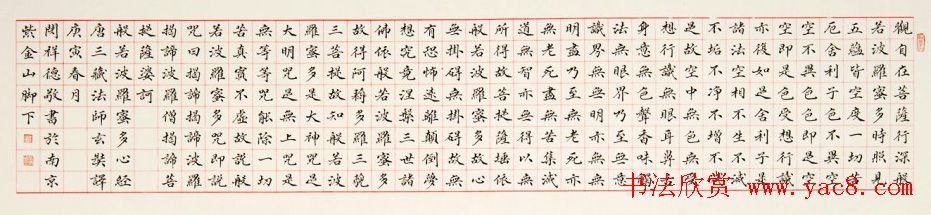 觀自在菩薩行深般
若波羅蜜多時照見
五蘊皆空度一切苦
厄舍利子色不異空
空不異色色即是空
空即是色受想行識
亦復如是舍利子是
諸法空相不生不滅
不垢不淨不增不減
是故空中無色無受
想行識無眼耳鼻舌
身意無色聲香味觸
法無眼界乃至無意
識界無無明亦無無
明盡乃至無老死亦
無老死盡無苦集滅
道無智亦無得以無
所得故菩提薩埵依
般若波羅蜜多故心
無掛礙無掛礙故無
有恐怖遠離顛倒夢
想究竟涅槃三世諸
佛依般若波羅蜜多
故得阿耨多羅三藐
三菩提故知般若波
羅蜜多是大神咒是
大明咒是無上咒是
無等等咒能除一切
苦真實不虛故說般
若波羅蜜多咒即說
咒曰揭諦揭諦波羅
揭諦波羅僧揭諦菩
提薩婆訶
般若波羅蜜多心經
唐三藏法師玄奘譯
庚寅春月
祥德敬書於南京
紫金山脚下
书法欣赏 www.yac8.com